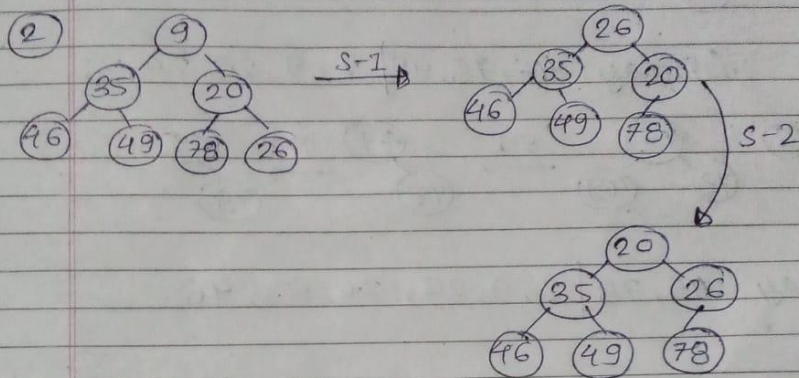 2
9
35 20
46 49 78 26
S-1
26
35 20
46 49 78
S-2
20
35 26
46 49 78